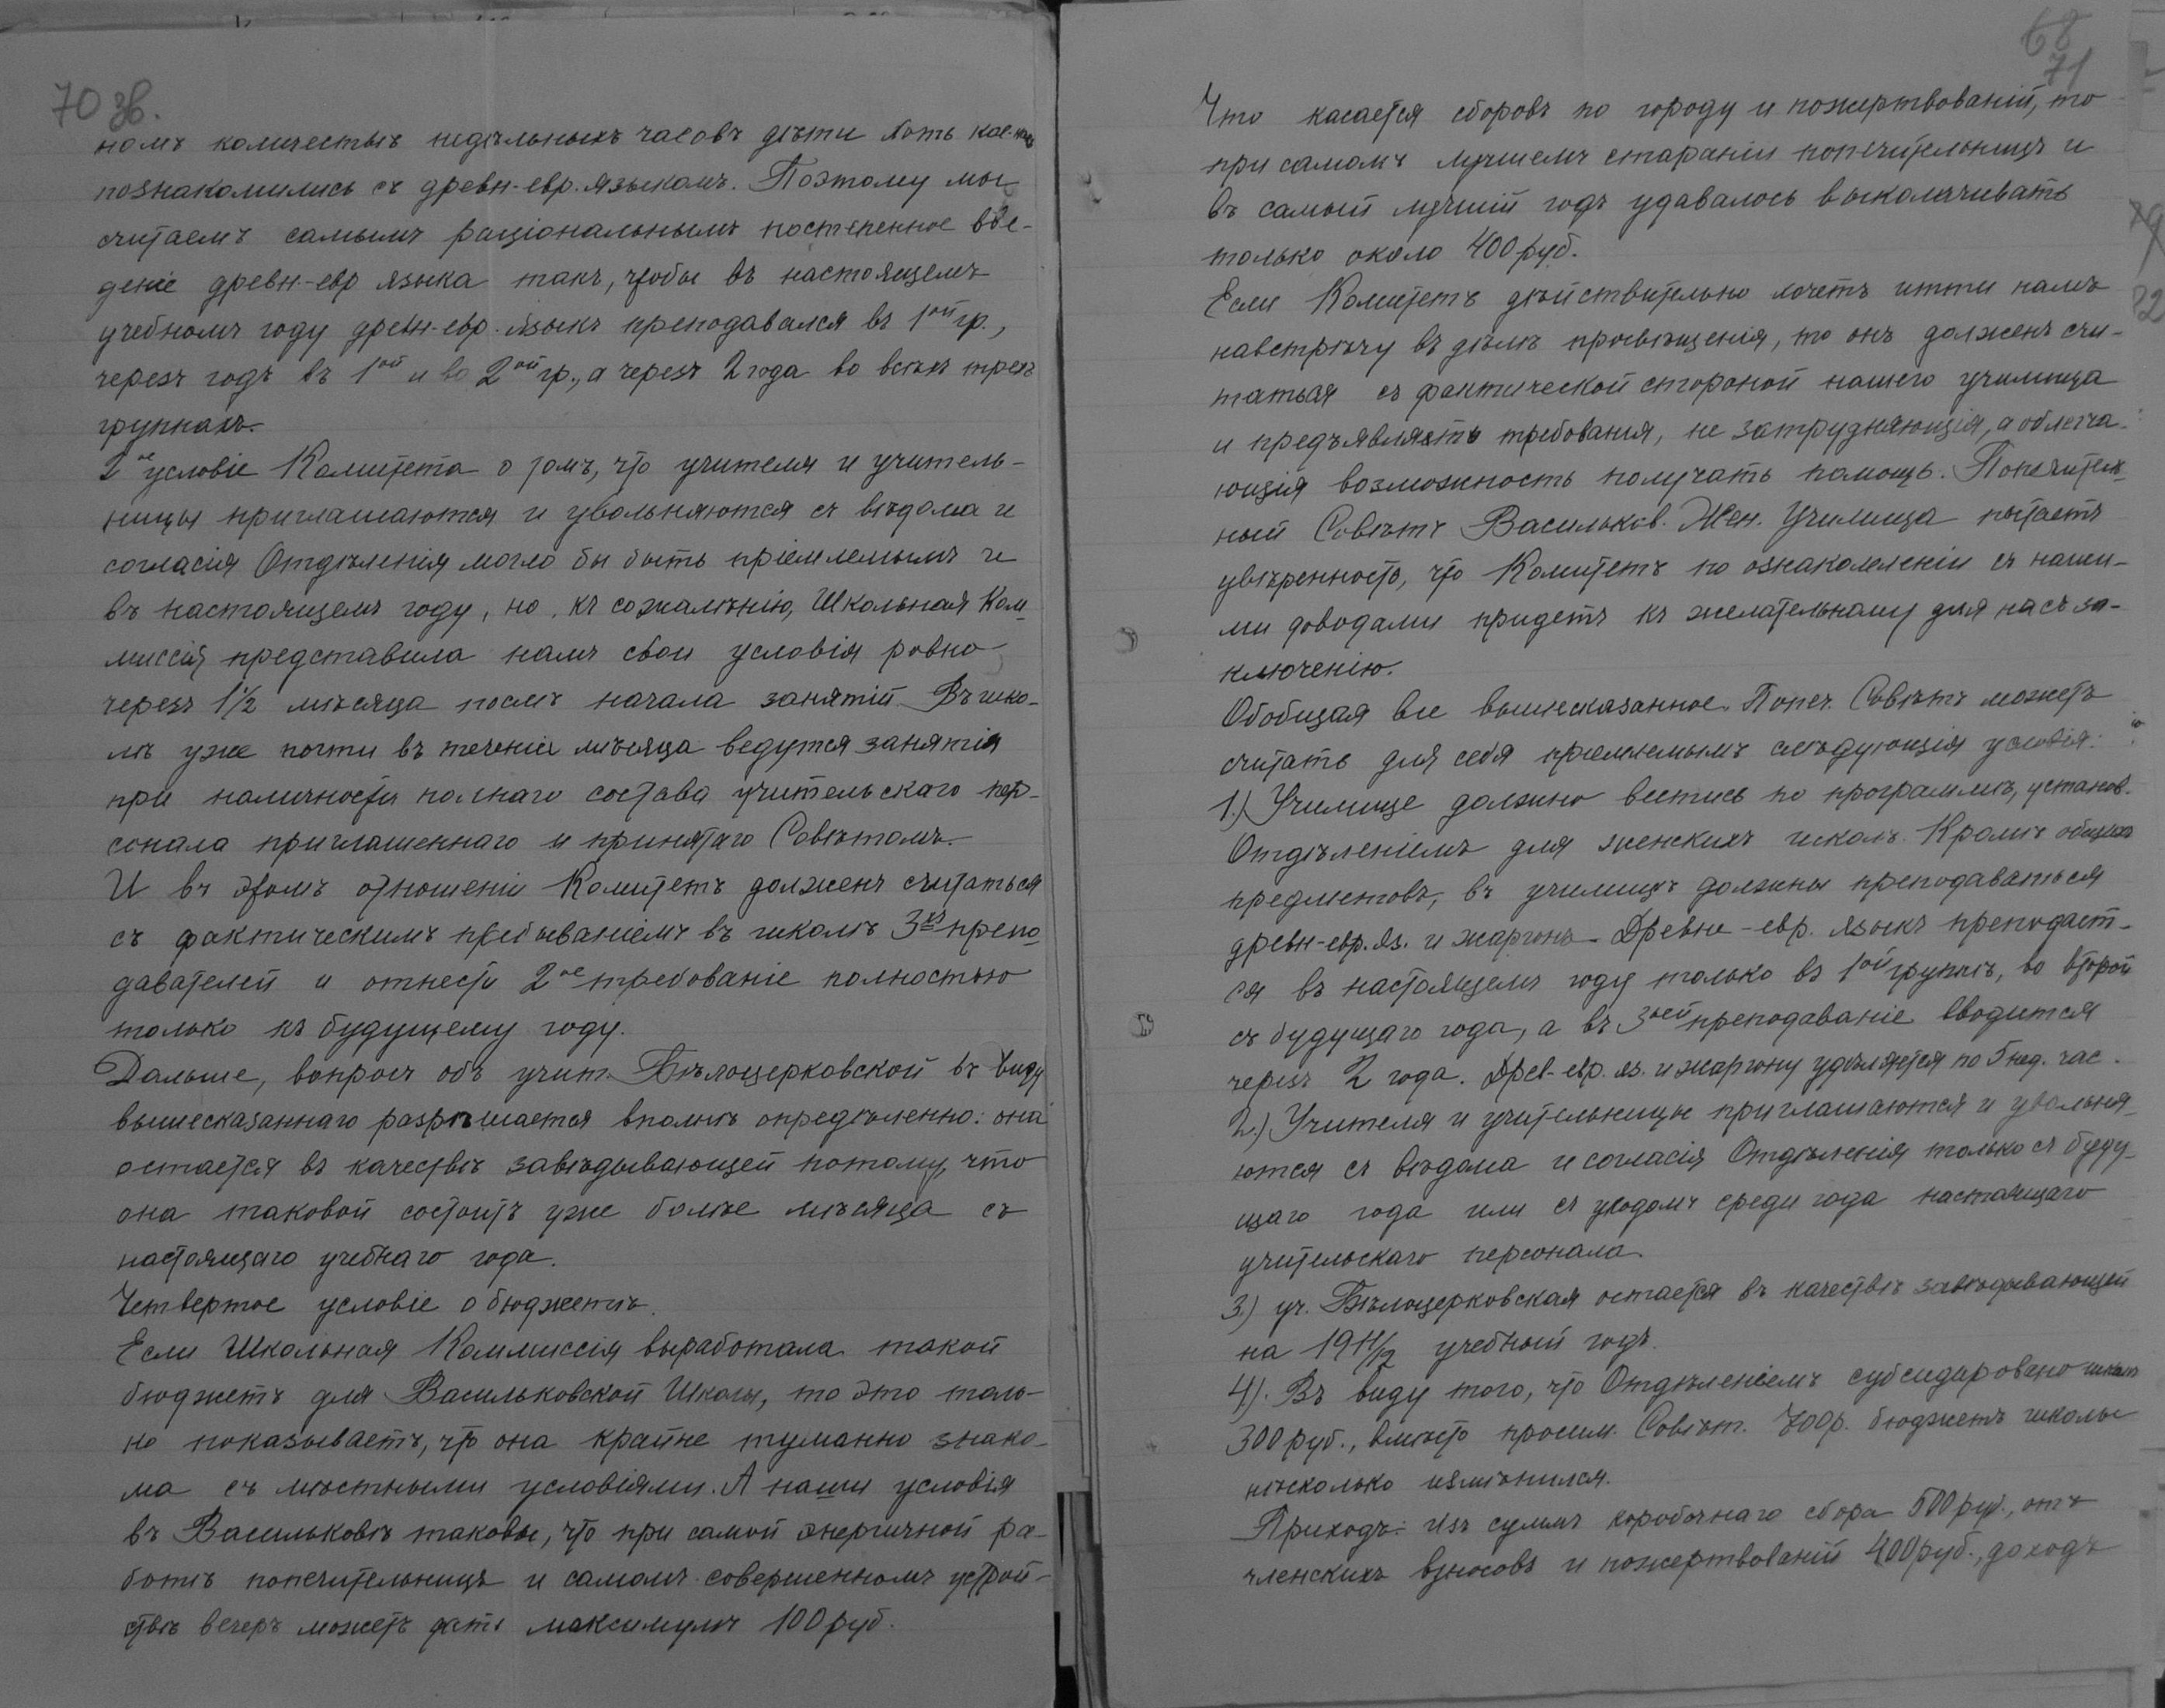 70 зв.
номъ количествѣ недѣльныхъ часовъ дѣти хоть кое-какъ
познакомились съ древн-евр. языкомъ. Поэтому мы
считаемъ самымъ раціональнымъ постепенное вве-
деніе древн.-евр языка такъ, чтобы въ настоящемъ
учебномъ году древн-евр. языкъ преподавался въ 1ой гр.,
черезъ годъ въ 1ой и во 2ой гр., а черезъ 2 года во всѣхъ трехъ
группахъ.
2ое условіе Комитета о томъ, что учителя и учитель-
ницы приглашаются и увольняются съ вѣдома и
согласія Отдѣленія могло бы быть пріемлемымъ и
въ настоящемъ году, но, къ сожалѣнію, Школьная Ком-
миссія представила намъ свои условія ровно
черезъ 1½ мѣсяца послѣ начала занятій. Въ шко-
лѣ уже почти въ теченіи мѣсяца ведутся занятія
при наличности полнаго состава учительскаго пер-
сонала приглашеннаго и принятаго Совѣтомъ.
И въ этомъ отношеніи Комитетъ долженъ считаться
съ фактическимъ пребываніемъ въ школѣ 3хъ препо-
давателей и отнести 2ое требованіе полностью
только къ будущему году.
Дальше, вопросъ объ учит. Бѣлоцерковской въ виду
вышесказаннаго разрѣшается вполнѣ опредѣленно: она
остается въ качествѣ завѣдывающей потому, что
она таковой состоитъ уже болѣе мѣсяца съ
настоящаго учебнаго года.
Четвертое условіе о бюджетѣ.
Если Школьная Коммиссія выработала такой
бюджетъ для Васильковской Школы, то это толь-
ко показываетъ, что она крайне туманно знако-
ма съ мѣстными условіями. А наши условія
въ Васильковѣ таковы, что при самой энергичной ра-
ботѣ попечительницъ и самомъ совершенномъ устрой-
ствѣ вечеръ можетъ дать максимумъ 100 руб.
68
71
Что касается сборовъ по городу и пожертвованій, то
при самомъ лучшемъ стараніи попечительницъ и
въ самый лучшій годъ удавалось выколачивать
только около 400 руб.
Если Комитетъ дѣйствительно хочетъ итти намъ
навстрѣчу въ дѣлѣ просвѣщенія, то онъ долженъ счи-
таться съ фактической стороной нашего училища
и предъявлять требованія, не затрудняющія, а облегча-
ющія возможность получать помощь. Попечитель-
ный Совѣтъ Васильков. Жен. Училища питаетъ
увѣренность, что Комитетъ по ознакомленіи съ наши-
ми доводами придетъ къ желательному для насъ за-
ключенію.
Обобщая все вышесказанное. Попеч. Совѣтъ можетъ
считать для себя пріемлемымъ слѣдующія условія:
1.) Училище должно вестись по программѣ, установ.
Отдѣленіемъ для женскихъ школъ. Кромѣ общихъ
предметовъ, въ училищѣ должны преподаваться
древн-евр. яз. и жаргонъ. Древне-евр. языкъ преподает-
ся въ настоящемъ году только въ 1ой группѣ, во второй
съ будущаго года, а въ 3ей преподаваніе вводится
черезъ 2 года. Древ-евр. яз. и жаргону удѣляется по 5 нед. час.
2.) Учителя и учительницы приглашаются и увольня-
ются съ вѣдома и согласія Отдѣленія только съ буду-
щаго года или съ уходомъ среди года настоящаго
учительскаго персонала.
3.) уч. Бѣлоцерковская остается въ качествѣ завѣдывающей
на 1911/12 учебный годъ.
4). Въ виду того, что Отдѣленіемъ субсидировано школѣ
300 руб., вмѣсто просим. Совѣт. 700 р. бюджетъ школы
нѣсколько измѣнился.
Приходъ: Изъ суммъ коробочнаго сбора 500 руб., отъ
членскихъ взносовъ и пожертвованій 400 руб., доходъ